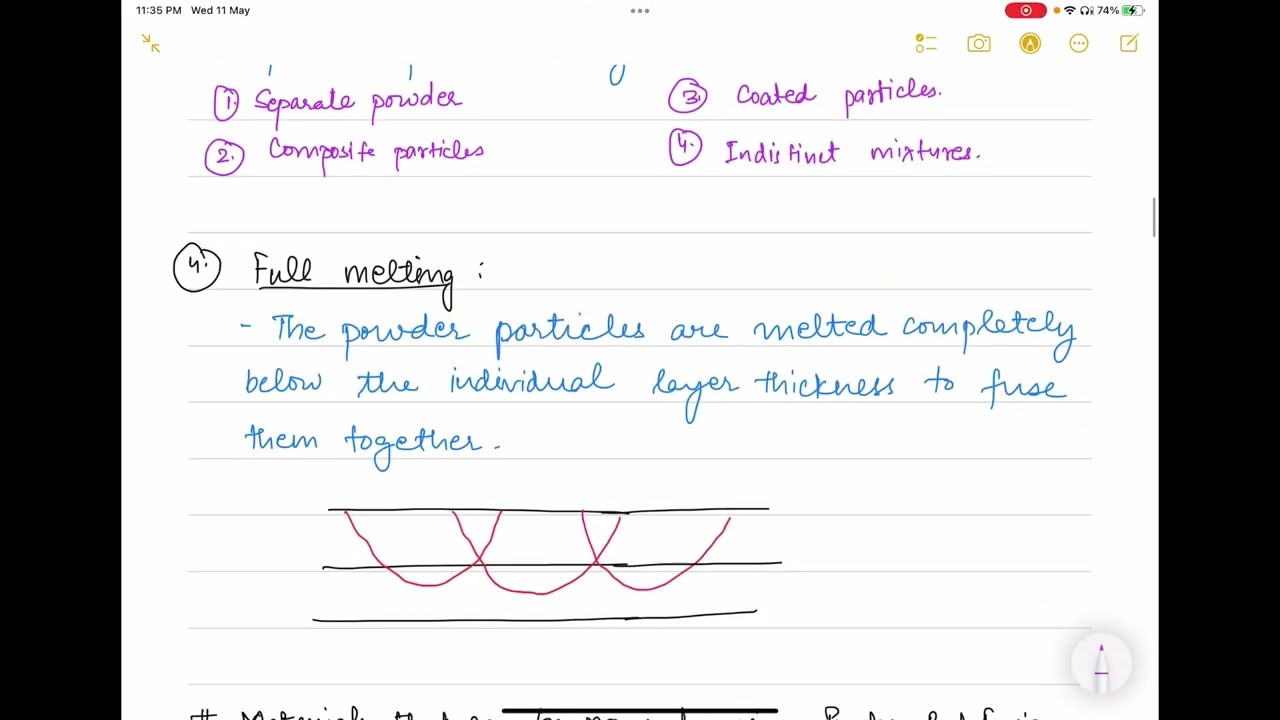 11:35 PM Wed 11 May
74%
1. Separate powder
3. Coated particles.
2. Composite particles
4. Indistinct mixtures.
4. Full melting :
- The powder particles are melted completely
below the individual layer thickness to fuse
them together.